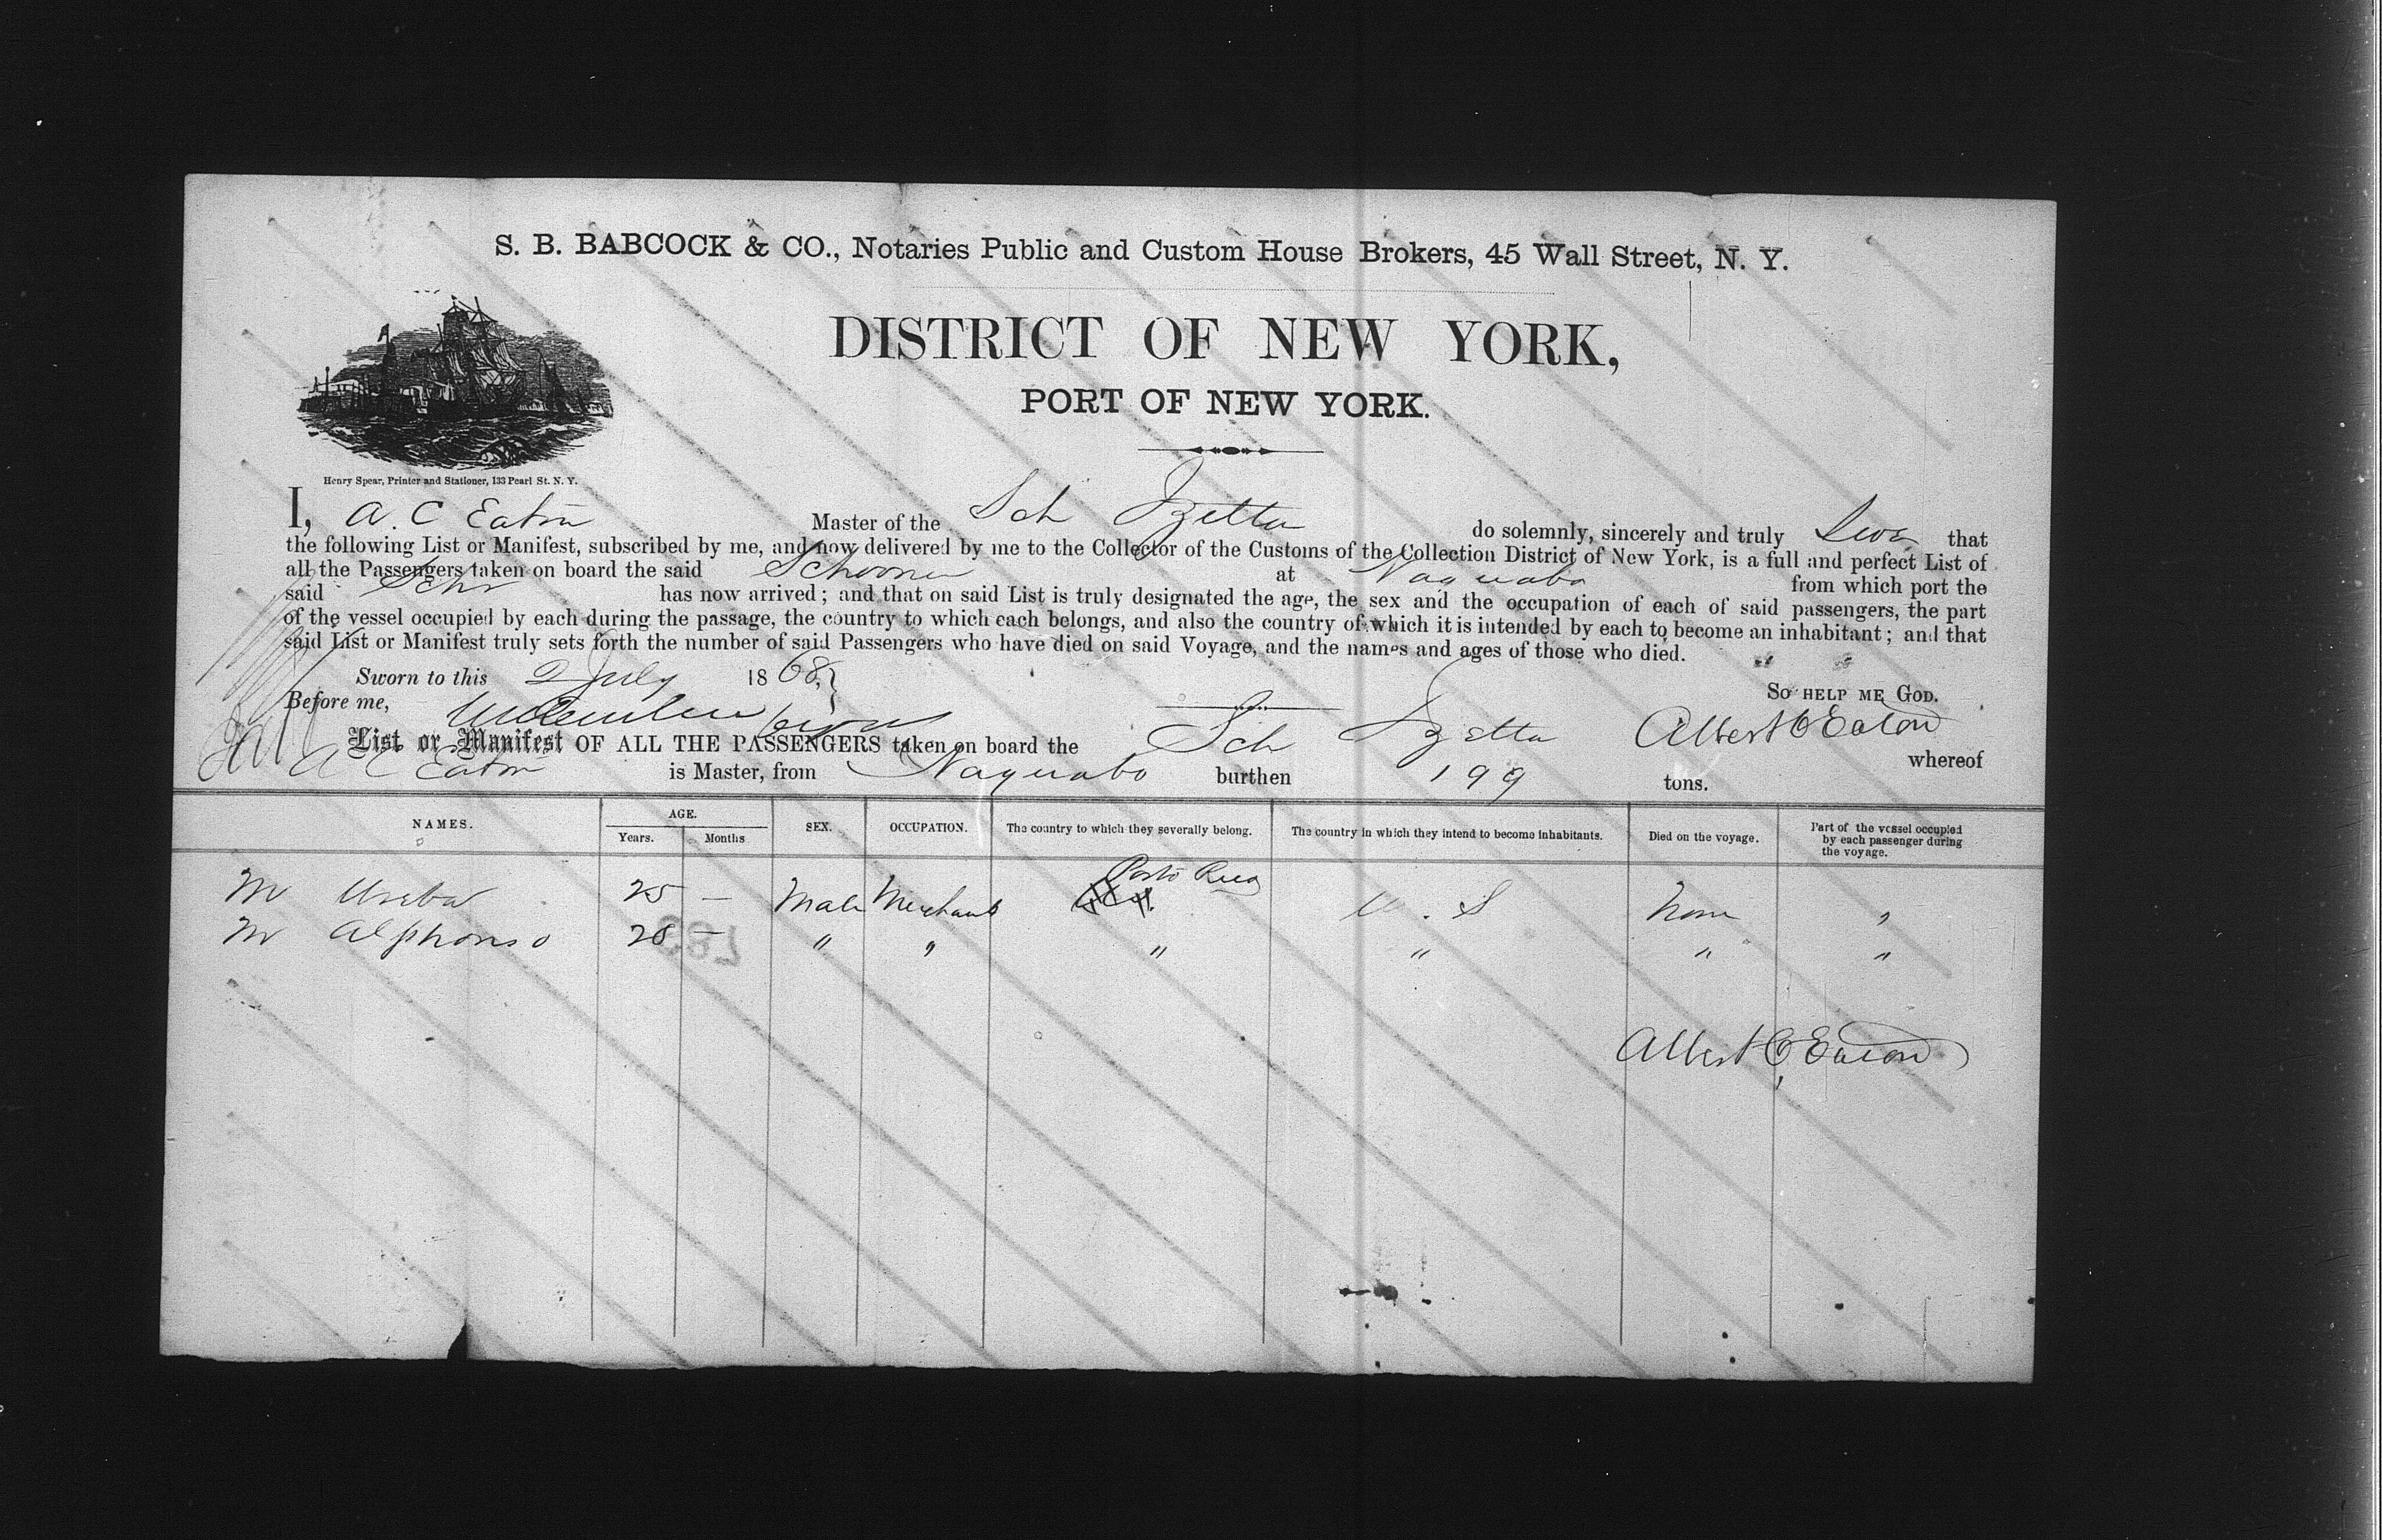 S. B. BABCOCK & CO., Notaries Public and Custom House Brokers, 45 Wall Street, N. Y.
DISTRICT OF NEW YORK,
PORT OF NEW YORK.
Henry Spear, Printer and Stationer, 133 Pearl St. N. Y.
I, A. C Eaton Master of the Sch Izetta do solemnly, sincerely and truly that
the following List or Manifest, subscribed by me, and now delivered by me to the Collector of the Customs of the Collection District of New York, is a full and perfect List of
all the Passengers taken on board the said Schooner at Naguabo from which port the
said Schr has now arrived; and that on said List is truly designated the age, the sex and the occupation of each of said passengers, the part
of the vessel occupied by each during the passage, the country to which each belongs, and also the country of which it is intended by each to become an inhabitant; and that
said List or Manifest truly sets forth the number of said Passengers who have died on said Voyage, and the names and ages of those who died.
Sworn to this 2 July 1868, } SO HELP ME GOD.
Before me, Albert C Eaton
List or Manifest OF ALL THE PASSENGERS taken on board the Sch Izetta whereof
A C Eaton is Master, from Naguabo burthen 199 tons.
NAMES. AGE. Years. Months SEX. OCCUPATION. The country to which they severally belong. The country in which they intend to become inhabitants. Died on the voyage. Part of the vessel occupied by each passenger during the voyage.
Mr 25 — Male Merchant Porto Rico U. S None "
Mr Alphonso 28 — " " " " " "
Albert C Eaton